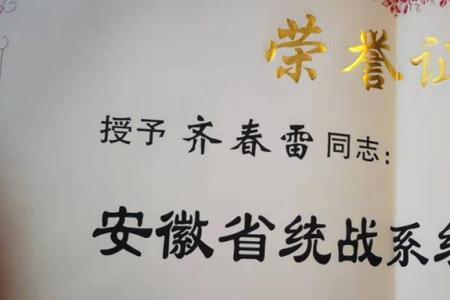 荣誉证
授予 齐春雷 同志：
安徽省统战系统